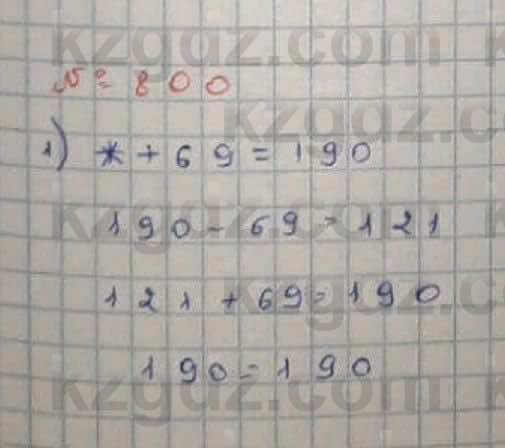 № 800
1) * + 69 = 190
190 - 69 = 121
121 + 69 = 190
190 = 190
kzgdz.com